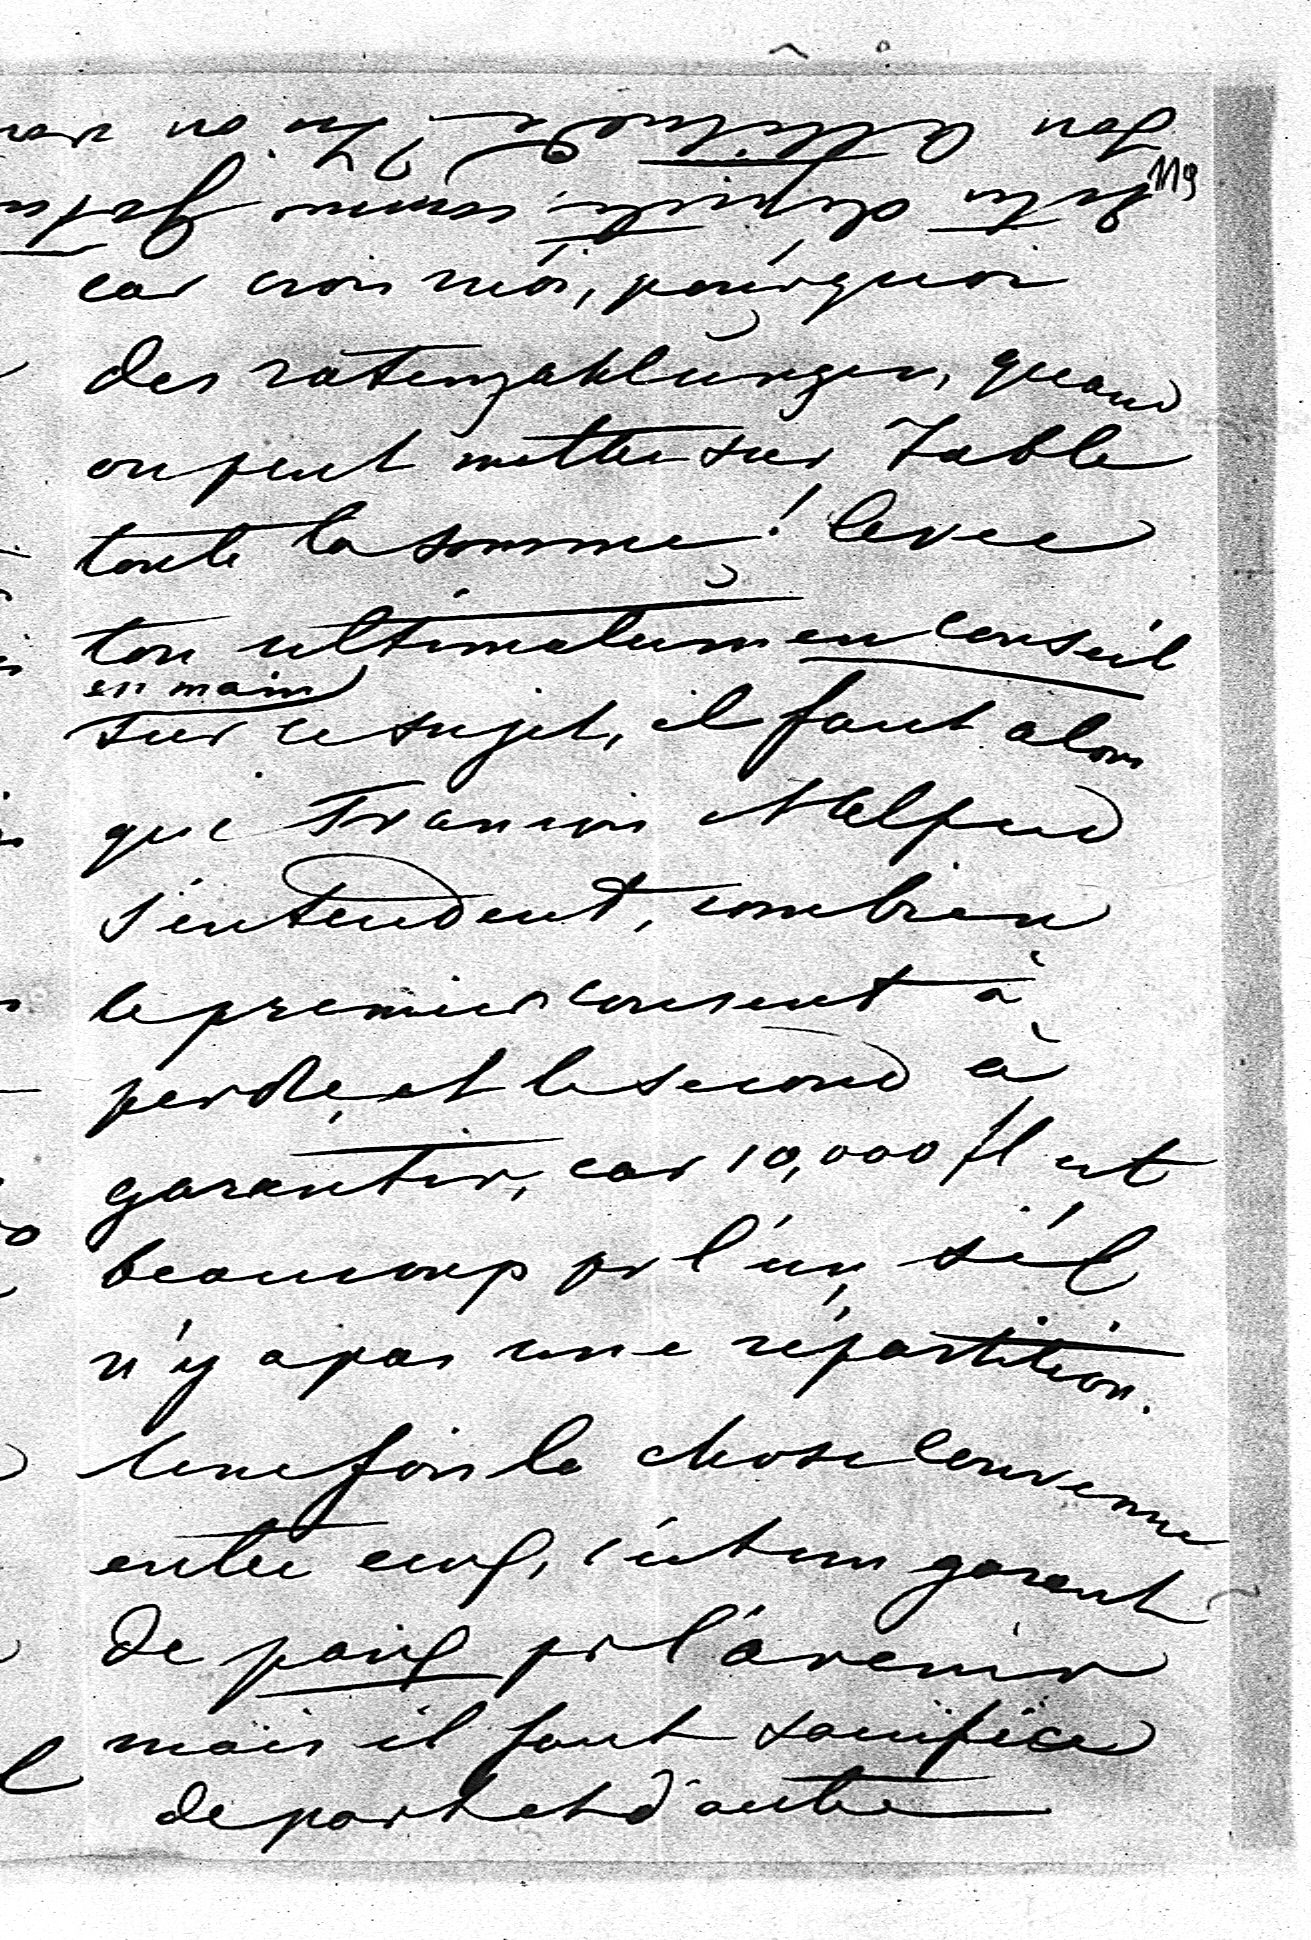 119
car crois moi, pourquoi
des ratenzahlŭngen, quand
on peut mettre sur table
toute la somme! levee
ton ultimatum en conseil
en main
sur ce sujet, il faut alors
que François et Alfred
s'entendent, combien
le premier consent à
perdre, et le second à
garantir, car 10,000 fl est
beaucoup pr l'un, s'il
n'y a pas une répartition.
Une fois la chose convenue
entre eux, c'est un garant
de paix pr l'avenir
mais il faut sacrifice
de part et d'autre